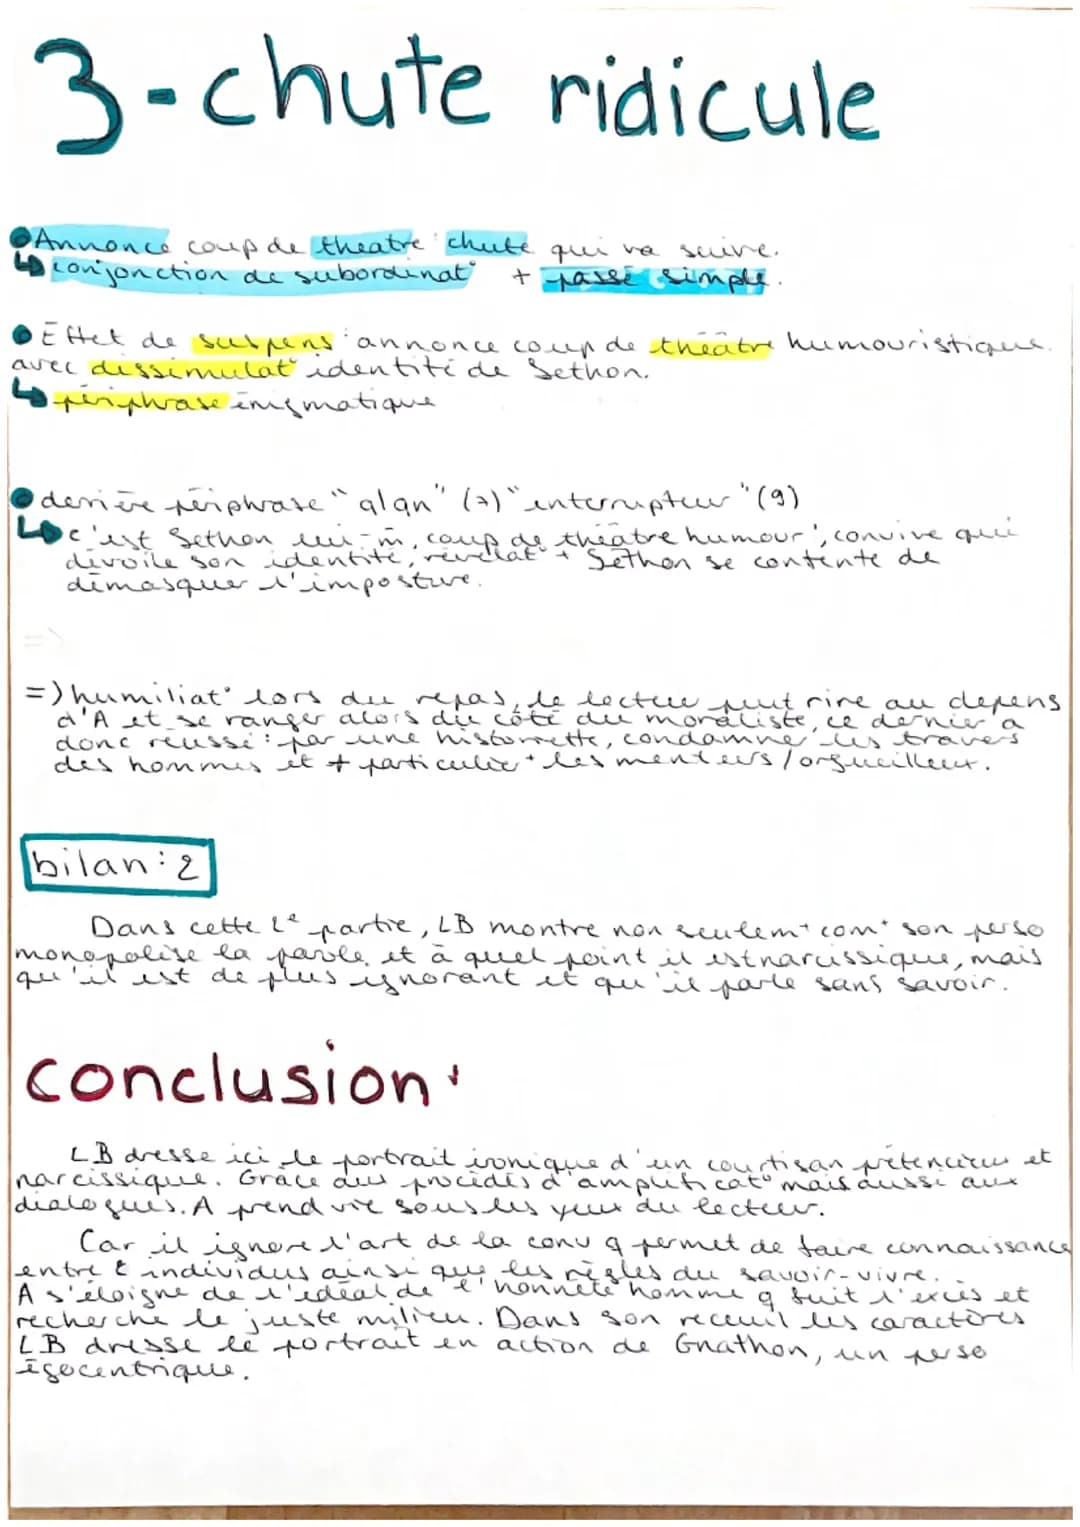 3-chute ridicule
Annonce coup de theatre : chute qui va suivre.
↳ conjonction de subordinat° + passé simple.
Effet de suspens : annonce coup de théâtre humouristique.
avec dissimulat° identité de Sethon.
↳ périphrase énigmatique
derrière périphrase "qlqn" (7) "interrupteur" (9)
↳ c'est Sethon lui-m̂, coup de théâtre humour', convive qui
dévoile son identité, révélat° + Sethon se contente de
démasquer l'imposture.
=>
=) humiliat° lors du repas, le lecteur peut rire au depens
d'A et se ranger alors du côté du moraliste, ce dernier a
donc réussi : par une historiette, condamne les travers
des hommes et + particulier + les menteurs / orgueilleux.
bilan : 2
Dans cette 2e partie, LB montre non seulemt comt son perso
monopolise la parole et à quel point il est narcissique, mais
qu'il est de plus ignorant et qu'il parle sans savoir.
conclusion :
LB dresse ici le portrait ironique d'un courtisan prétencieux et
narcissique. Grâce aux procédés d'amplificat° mais aussi aux
dialogues. A prend vie sous les yeux du lecteur.
Car il ignore l'art de la conv q permet de faire connaissance
entre 2 individus ainsi que les règles du savoir-vivre.
A s'éloigne de l'idéal de l'honnête homme q fuit l'excès et
recherche le juste milieu. Dans son receuil les caractères
LB dresse le portrait en action de Gnathon, un perso
égocentrique.